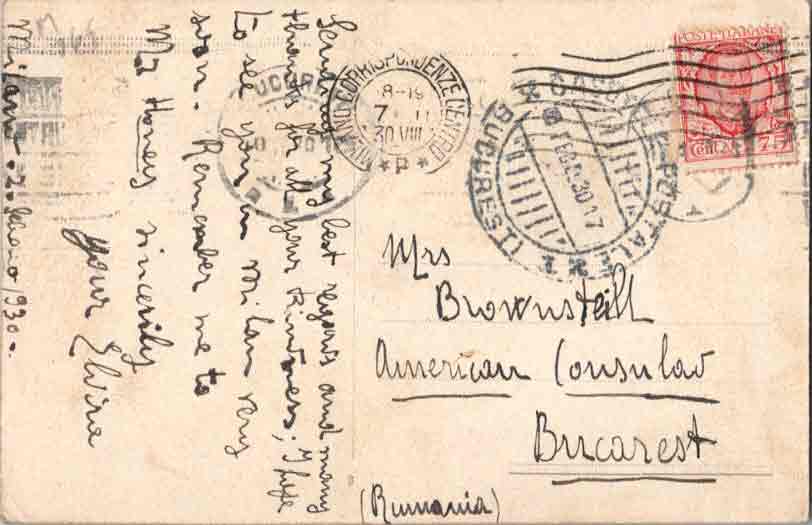 Send you my best regards and many
thanks for all your Kindness; I hope
to see you in Milan very
soon. Remember me to
Mr Honey sincerily
your Elvira
Milano - 1930 -
Mrs
Brownstill
American Consulav
Bucarest
(Rumania)
POSTE ITALIANE
CENT. 75
MILANO CORRISPONDENZE CENTRO
8-19
7 II
30 VIII
* P *
BUCURESTI
POSTALE
FEB. 930 17